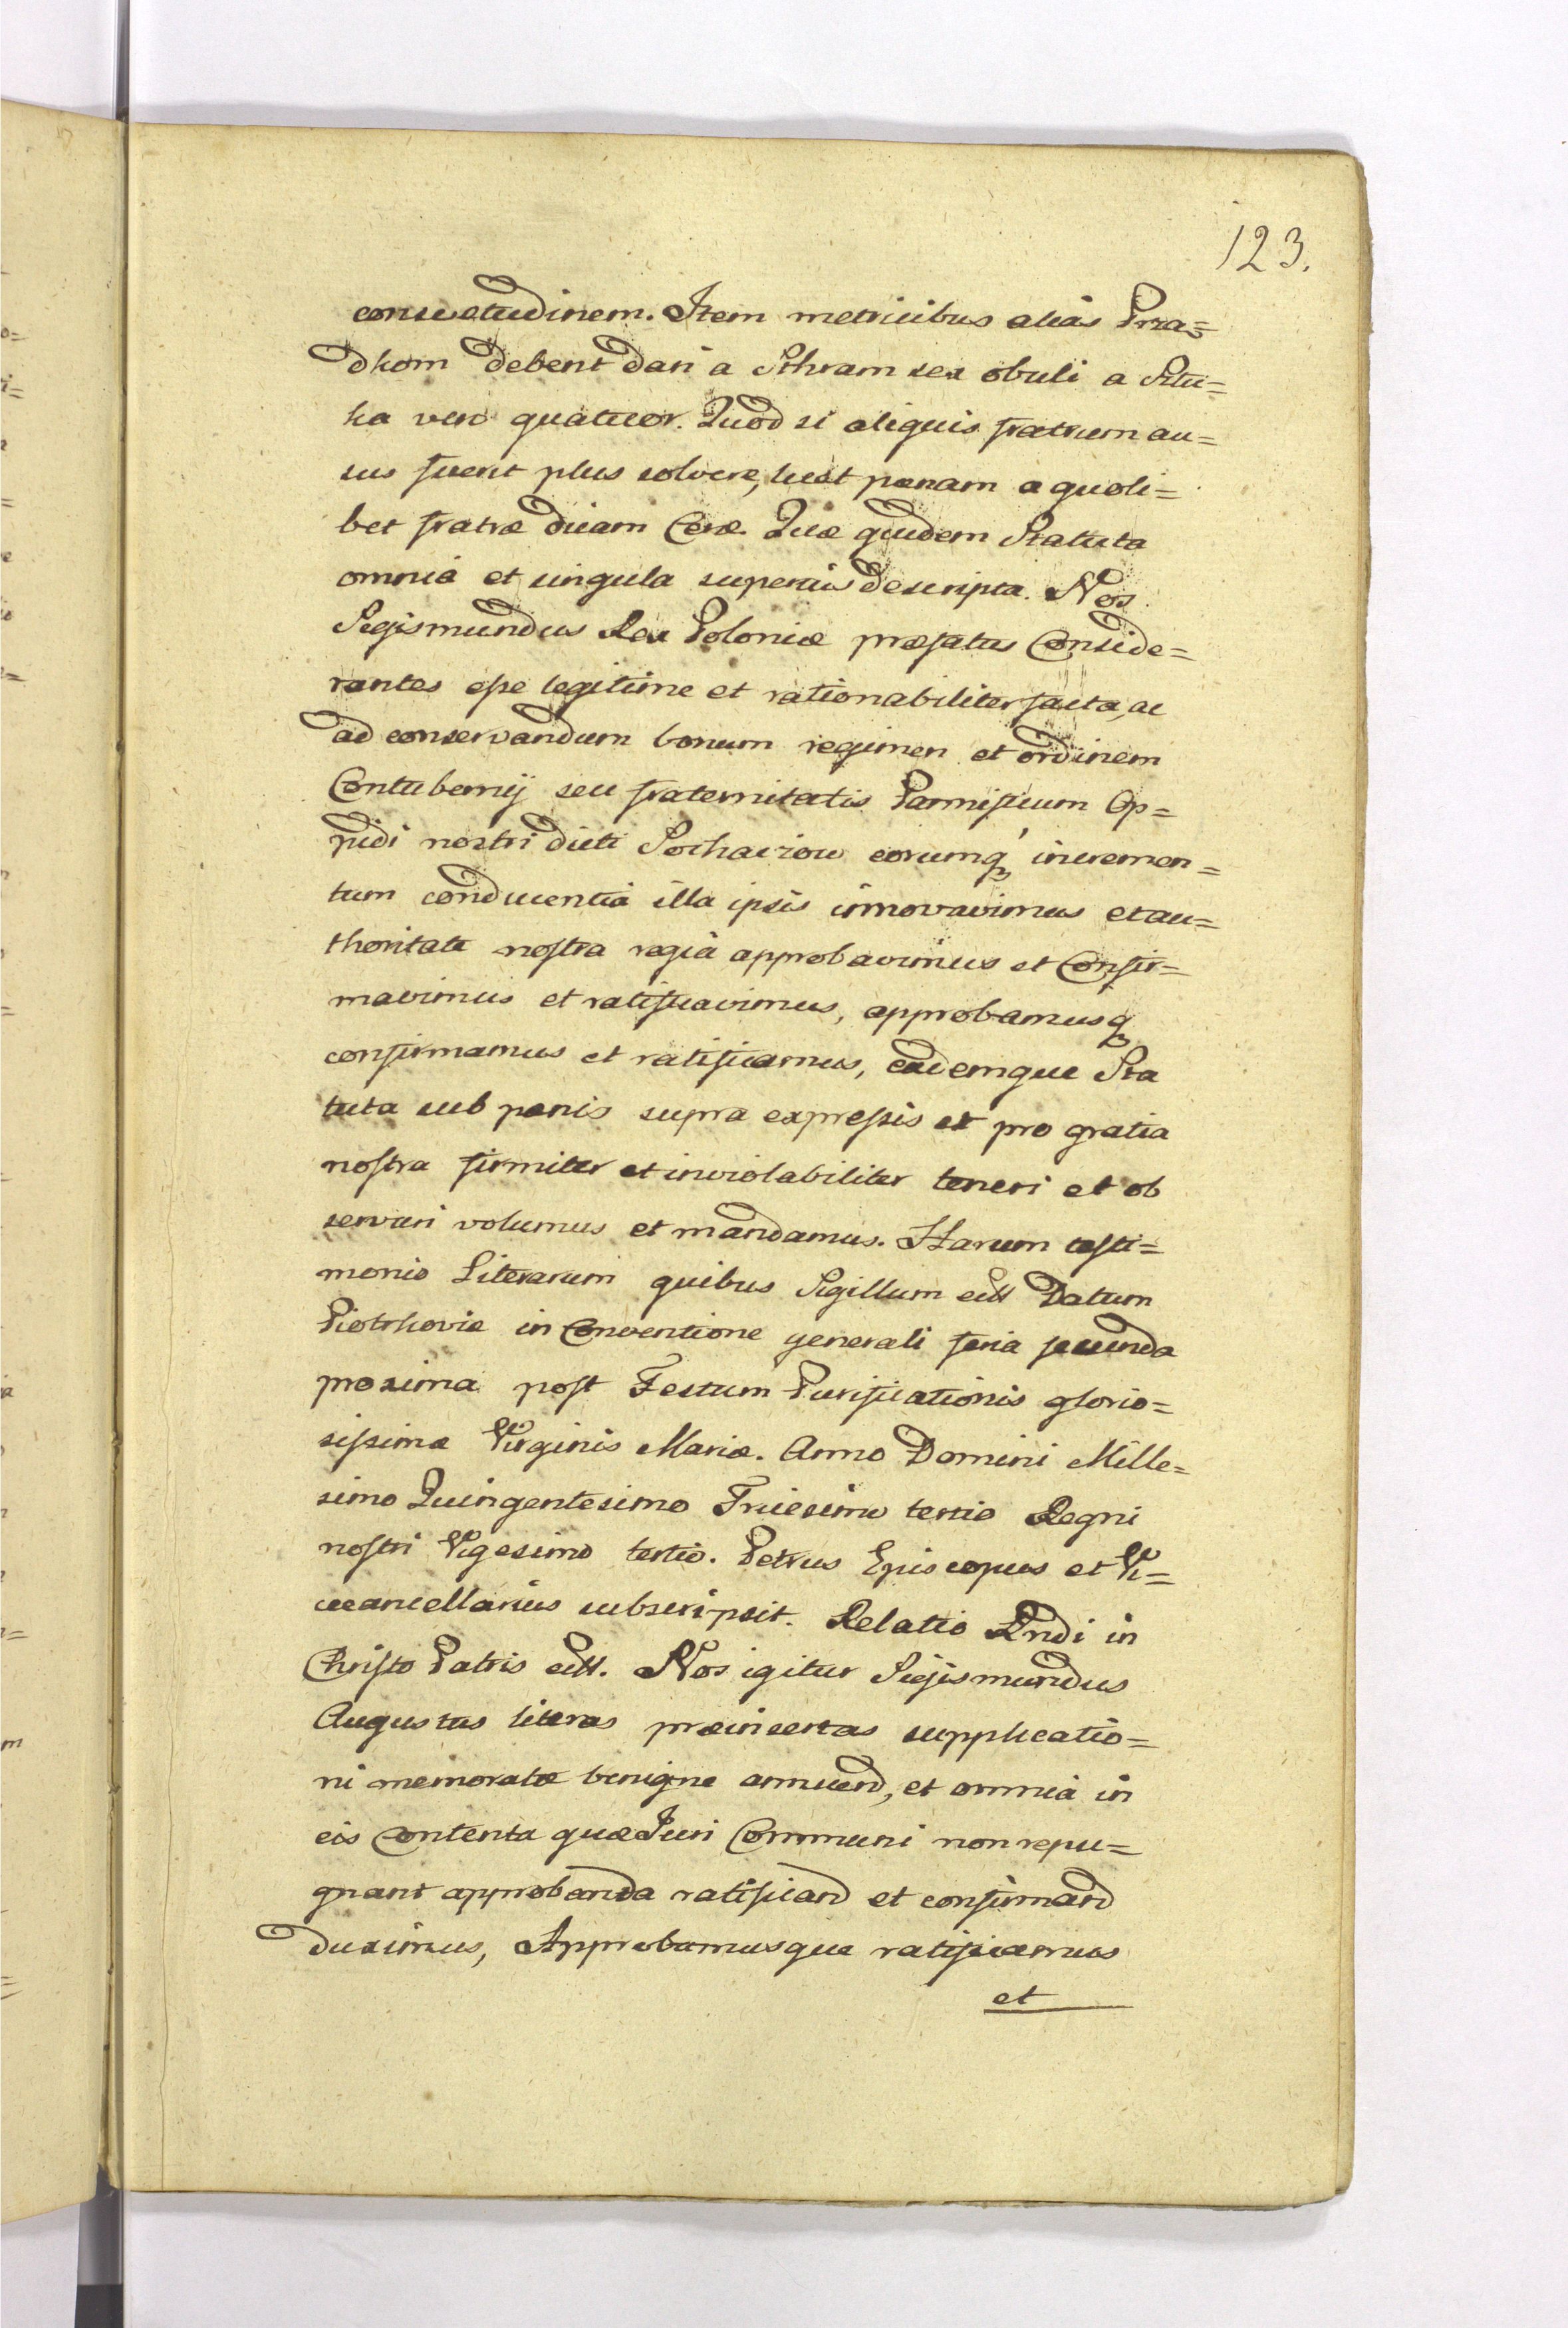 123.
consuetudinem. Item metricibus alias Prza=
dkom debent dari a Sthram sex obuli a Stu=
ka vero quatuor. Quod si aliquis fratrum au=
sus fuerit plus solvere, luet pœnam a quoli=
bet fratre
omnia et singula superius descripta. Nos
Sigismundus Rex Poloniæ præfatus Conside=
rantes esse legitime et rationabiliter facta, ac
ad conservandum bonum regimen et ordinem
Contubernij seu fraternitatis Pannificum Op=
pidi nostri dicti Sochaczow eorumq́ incremen=
tum conducentia illa ipsis innovavimus et au=
thoritate nostra regia approbavimus et Confir=
mavimus et ratificavimus, approbamusq
confirmamus et ratificamus, eademque Sta
tuta sub pœnis supra expressis et pro gratia
nostra firmiter et inviolabiliter teneri et ob
servari volumus et mandamus. Harum testi=
monio Literarum quibus Sigillum ett Datum
Piotrkoviæ in Conventione generali feria secunda
proxima post Festum Purificationis glorio=
sissimæ Virginis Mariæ. Anno Domini Mille=
simo Quingentesimo Tricesimo tertio Regni
nostri Vigesimo tertio. Petrus Episcopus et Vi=
cecancellarius subscripsit. Relatio Rndi in
Christo Patris ett. Nos igitur Sigismundus
Augustus literas præinsertas supplicatio=
ni memoratæ benigne annuend, et omnia in
eis Contenta quæ Juri Communi non repu=
gnant approbanda ratificand et confirmand
duximus, Approbamusque ratificamus
et